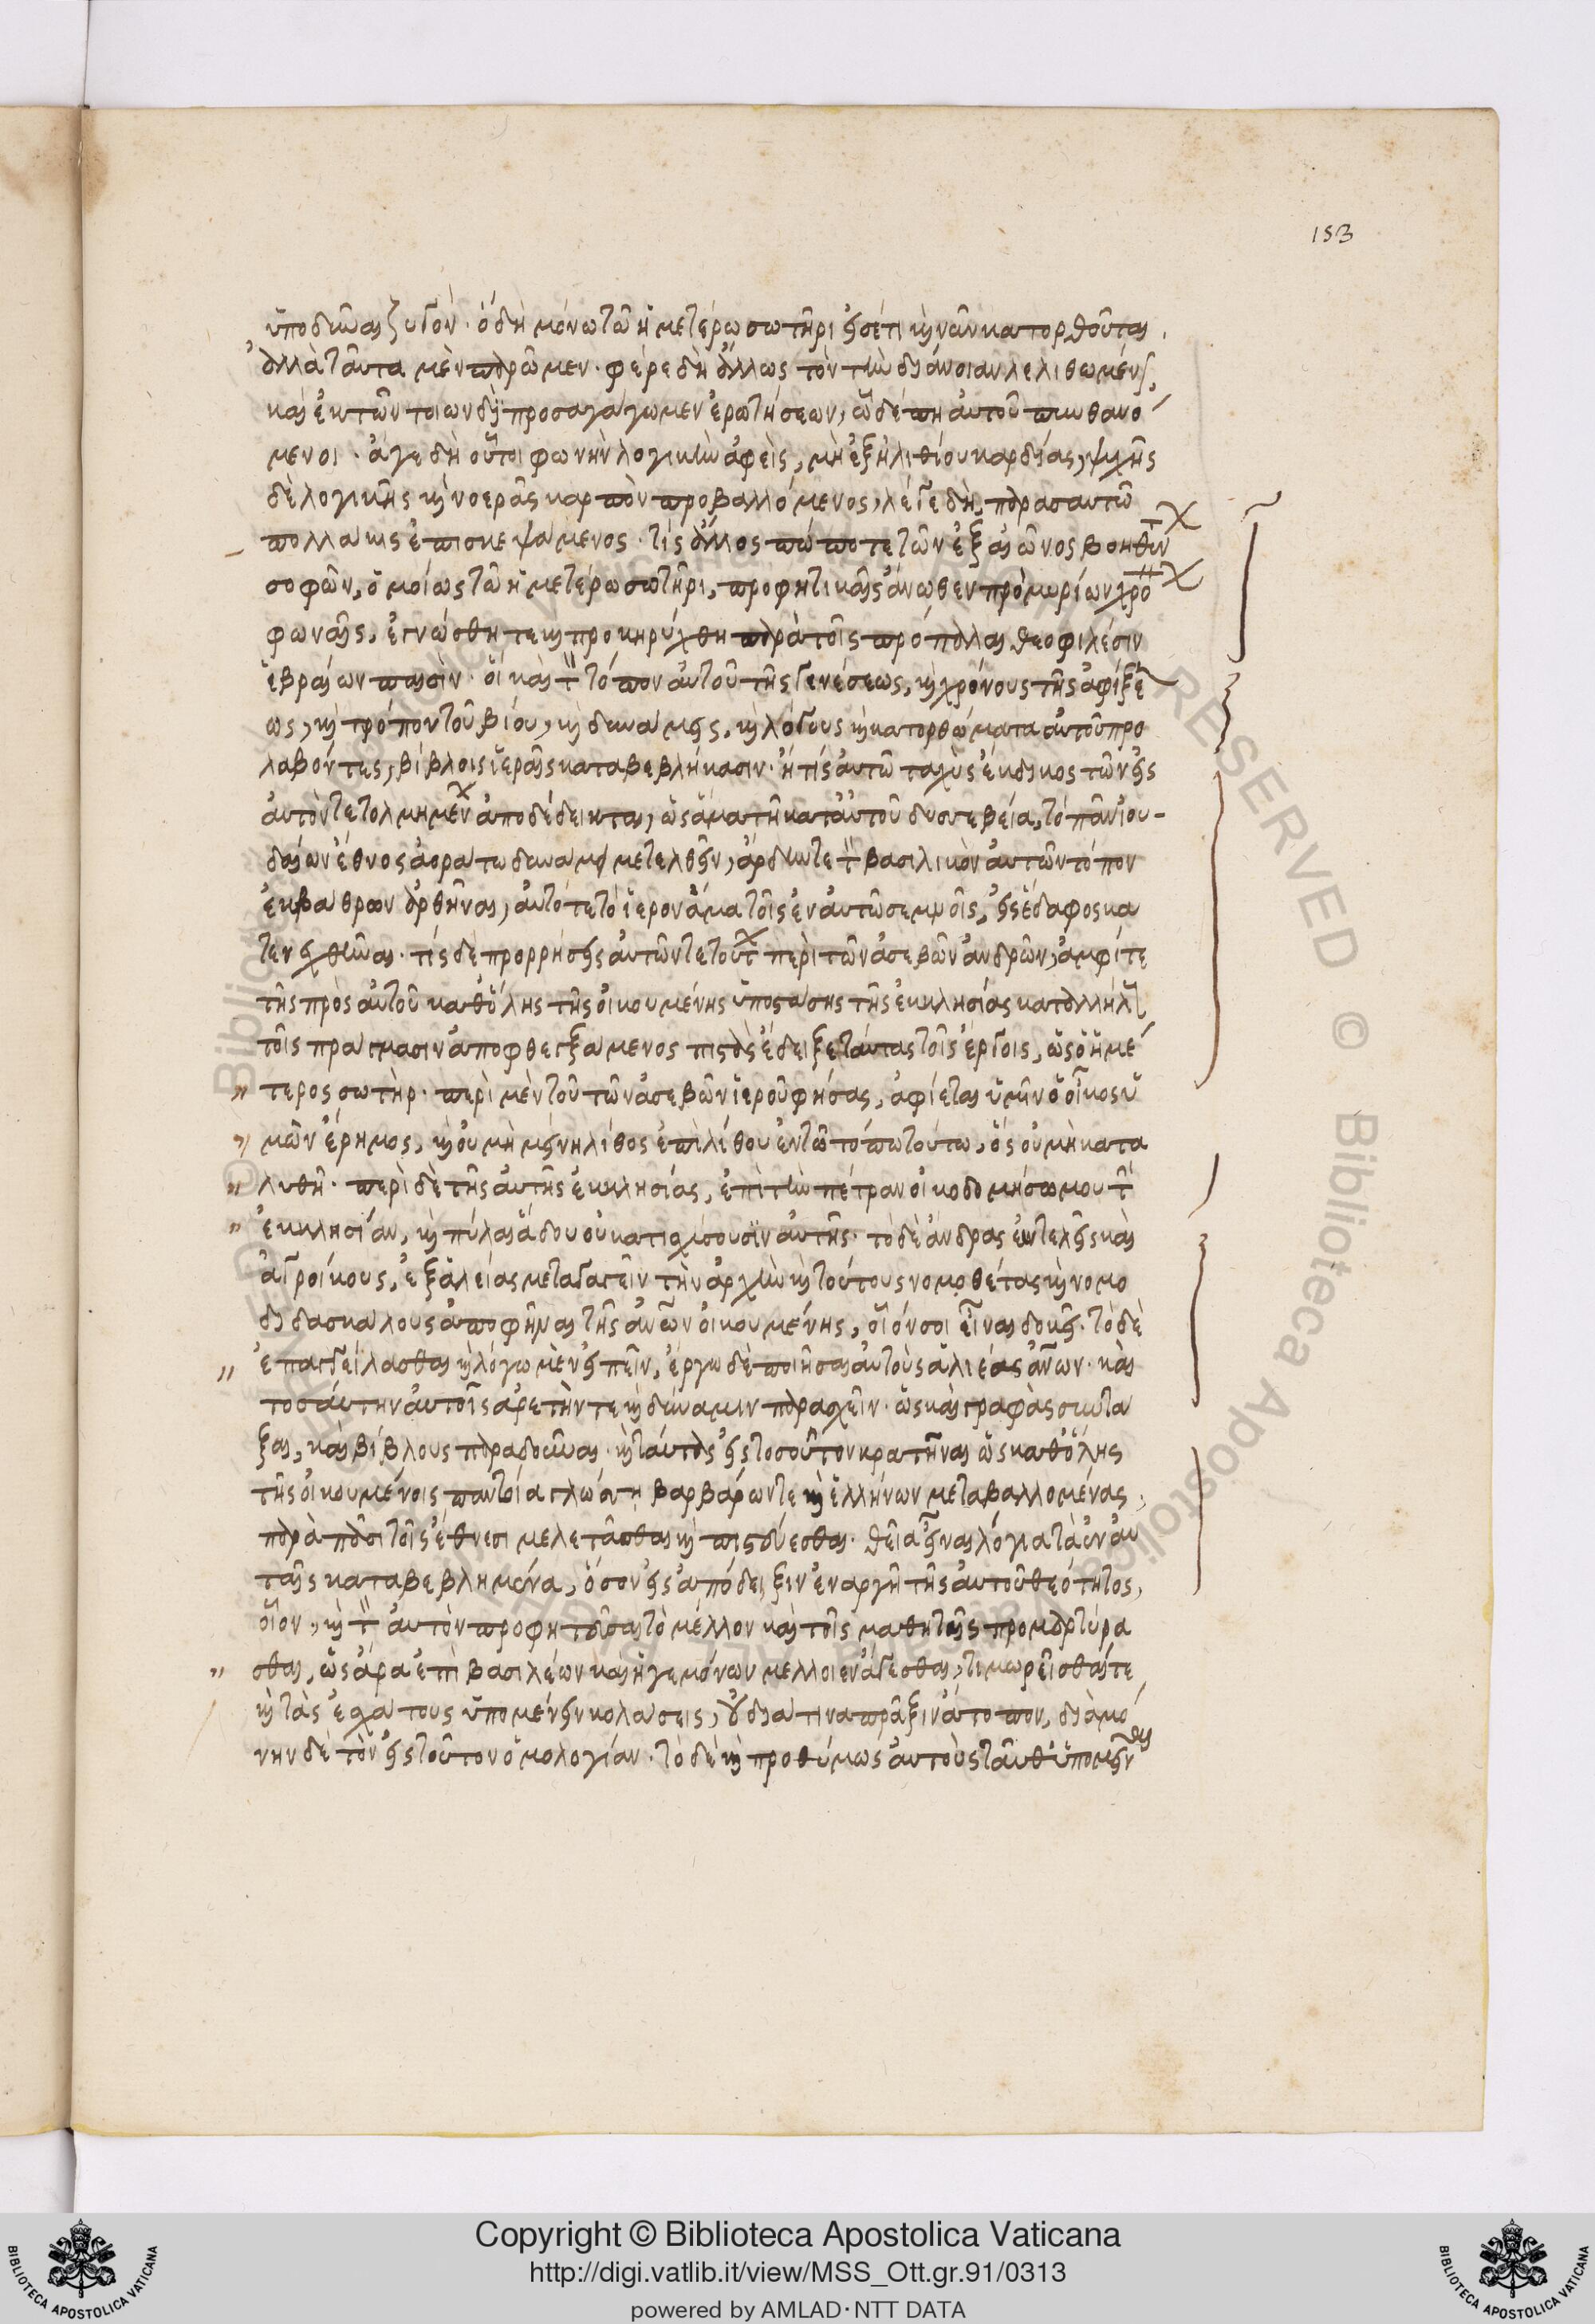 153
ὑποδῦναι ζυγόν· ὃ δὴ μόνω τῶ ἡμετέρω σωτῆρι εἰσέτι καὶ νῦν κατορθοῦται.
ἀλλὰ ταῦτα μὲν παρῶμεν· φέρε δὴ ἄλλως τὸν τὴν διάνοιαν λελιθωμένον,
καὶ ἐκ τῶν τοιῶνδε προσαγάγωμεν ἐρωτήσεων, ὧδέ πη αὐτοῦ πυνθανό
μενοι· ἄγε δὴ οὗτοι φωνὴν λογικὴν ἀφεὶς, μὴ ἐξ ἠλιθίου καρδίας, ψυχῆς
δὲ λογικῆς καὶ νοερᾶς καρπὸν προβαλλόμενος, λέγε δὴ, παρὰ σαυτῶ
πολλάκις ἐπισκεψάμενος· τίς ἄλλος πώποτε τῶν ἐξ αἰῶνος βοηθέντων
σοφῶν, ὁμοίως τῶ ἡμετέρω σωτῆρι, προφητικαῖς ἄνωθεν πρὸ μυρίων χρό
φωναῖς, ἐγνώσθη τε καὶ προκηρύχθη παρὰ τοῖς πρόπαλαι θεοφιλέσιν
ἑβραίων παισίν· οἳ καὶ τὸν τόπον αὐτοῦ τῆς γενέσεως, καὶ χρόνους τῆς ἀφίξε
ως, καὶ τρόπον τοῦ βίου, καὶ δυνάμεις, καὶ λόγους καὶ κατορθώματα αὐτοῦ προ
λαβόντες, βίβλοις ἱεραῖς καταβεβλήκασιν· ἢ τίς αὐτῶ ταχὺς ἔκδικος τῶν εἰς
αὐτὸν τετολμημένων ἀποδέδεικται, ὡς ἅμα τῆ κατ' αὐτοῦ δυσσεβεία, τὸ πᾶν ἰου-
δαίων ἔθνος ἀοράτω δυνάμει μετελθεῖν, ἄρδην τε τὸν βασιλικὸν αὐτῶν τόπον
ἐκ βάθρων ἀρθῆναι, αὐτό τε τὸ ἱερὸν ἅμα τοῖς ἐν αὐτῶ σεμνοῖς, εἰς ἔδαφος κα
τενεχθῆναι· τίς δὲ προρρήσεις αὐτῶν τε τούτων περὶ τῶν ἀσεβῶν ἀνδρῶν, ἀμφί τε
τῆς πρὸς αὐτοῦ καθ' ὅλης τῆς οἰκουμένης ὑποστάσης τῆς ἐκκλησίας καταλλήλους
τοῖς πράγμασιν ἀποφθεγξάμενος πιστὰς ἔδειξε ταύτας τοῖς ἔργοις, ὡς ὁ ἡμέ
" τερος σωτήρ· περὶ μὲν τοῦ τῶν ἀσεβῶν ἱεροῦ φήσας, ἀφίεται ὑμῖν ὁ οἶκος ὑ
" μῶν ἔρημος, καὶ οὐ μὴ μείνη λίθος ἐπὶ λίθου ἐν τῶ τόπω τούτω, ὃς οὐ μὴ κατα
" λυθῆ· περὶ δὲ τῆς αὐτῆς ἐκκλησίας, ἐπὶ τὴν πέτραν οἰκοδομήσω μου τὴν
" ἐκκλησίαν, καὶ πύλαι ἅδου οὐ κατισχύσουσιν αὐτῆς· τὸ δὲ ἄνδρας εὐτελεῖς καὶ
ἀγροίκους, ἐξ ἁλείας μεταγαγεῖν τὴν ἀρχὴν καὶ τούτους νομοθέτας καὶ νομο
διδασκάλους ἀποφῆναι τῆς ἀνων οἰκουμένης, οἷόν σοι εἶναι δοκεῖ· τὸ δὲ
" ἐπαγγείλασθαι καὶ λόγω μὲν εἰπεῖν, ἔργω δὲ ποιῆσαι αὐτοὺς ἁλιέας ἀνων· καὶ
τοσαύτην αὐτοῖς ἀρετήν τε καὶ δύναμιν παρασχεῖν· ὡς καὶ γραφὰς συντά
ξαι, καὶ βίβλους παραδοῦναι· καὶ ταύτας εἰς τοσοῦτον κρατῆναι ὡς καθ' ὅλης
τῆς οἰκουμένοις παντοία γλώσση βαρβάρων τε καὶ ἑλλήνων μεταβαλλομένας,
παρὰ πᾶσι τοῖς ἔθνεσι μελετᾶσθαι καὶ πιστεύεσθαι· θεῖα εἶναι λόγια τὰ ἐν αὐ
ταῖς καταβεβλημένα, ὅσον εἰς ἀπόδειξιν ἐναργῆ τῆς αὐτοῦ θεότητος,
οἷον, καὶ τὸ αὐτὸν προφητεῦσαι τὸ μέλλον καὶ τοῖς μαθηταῖς προμαρτύρα
" σθαι, ὡς ἄρα ἐπὶ βασιλέων καὶ ἡγεμόνων μέλλοιεν ἄγεσθαι, τιμωρεῖσθαί τε
καὶ τὰς ἐσχάτους ὑπομένειν κολάσεις, οὐ διά τινα πρᾶξιν ἄτοπον, διὰ μό
νην δὲ τὸν εἰς τοῦτον ὁμολογίαν· τὸ δὲ καὶ προθύμως αὐτοὺς ταῦθ' ὑπομεῖναι
Copyright © Biblioteca Apostolica Vaticana
http://digi.vatlib.it/view/MSS_Ott.gr.91/0313
powered by AMLAD·NTT DATA